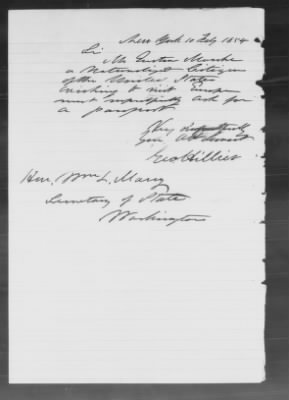 New York 10 Feby 1854
Sir
Mr Gustav
a Naturalized Citizen
of the United States
wishing to visit Europe
most respectfully ask for
a passport
Very respectfully
your Obt Servant
Geo Hillier
Hon. Wm L. Marcy
Secretary of State
Washington